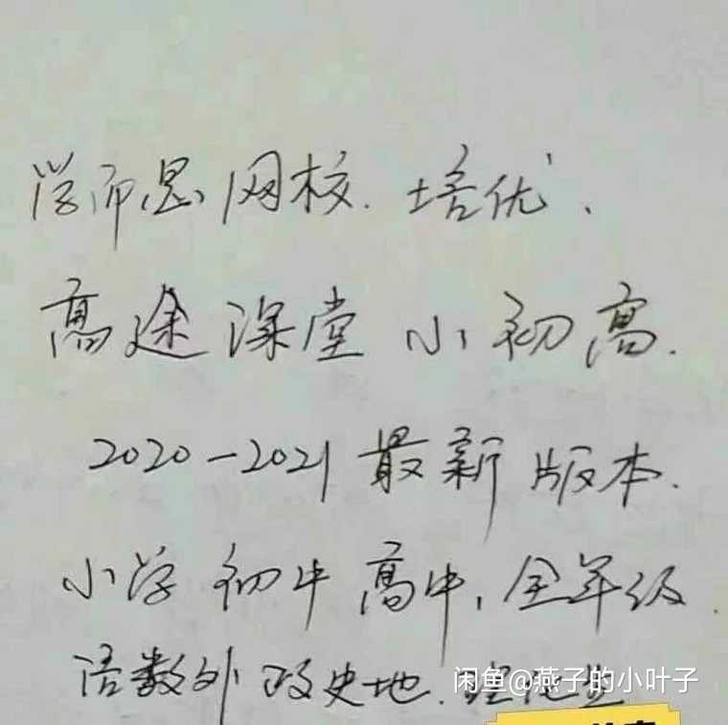 学而思网校.培优、
高途课堂 小初高.
2020-2021最新版本.
小学 初中 高中,全年级
语数外 政史地.理化生
闲鱼@燕子的小叶子